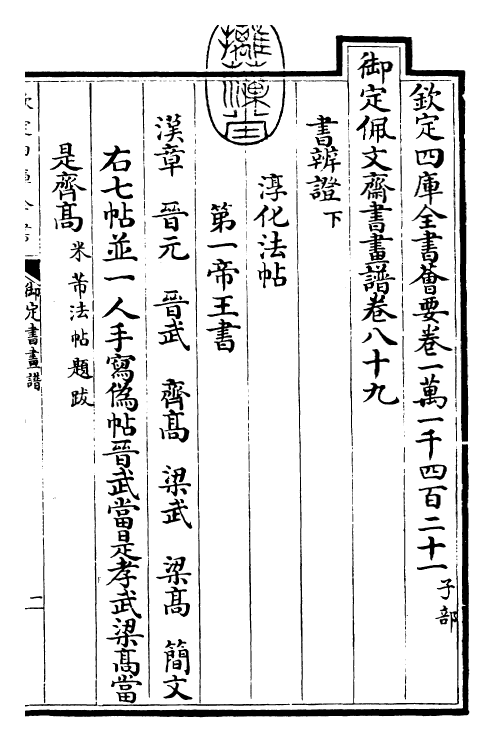 欽定四庫全書薈要卷一萬一千四百二十一 子部
御定佩文齋書畫譜卷八十九
書辨證下
淳化法帖
第一帝王書
漢章 晉元 晉武 齊髙 梁武 梁髙 簡文
右七帖並一人手寫偽帖晉武當是孝武梁髙當
是齊髙 米芾法帖題跋
御定書畫譜